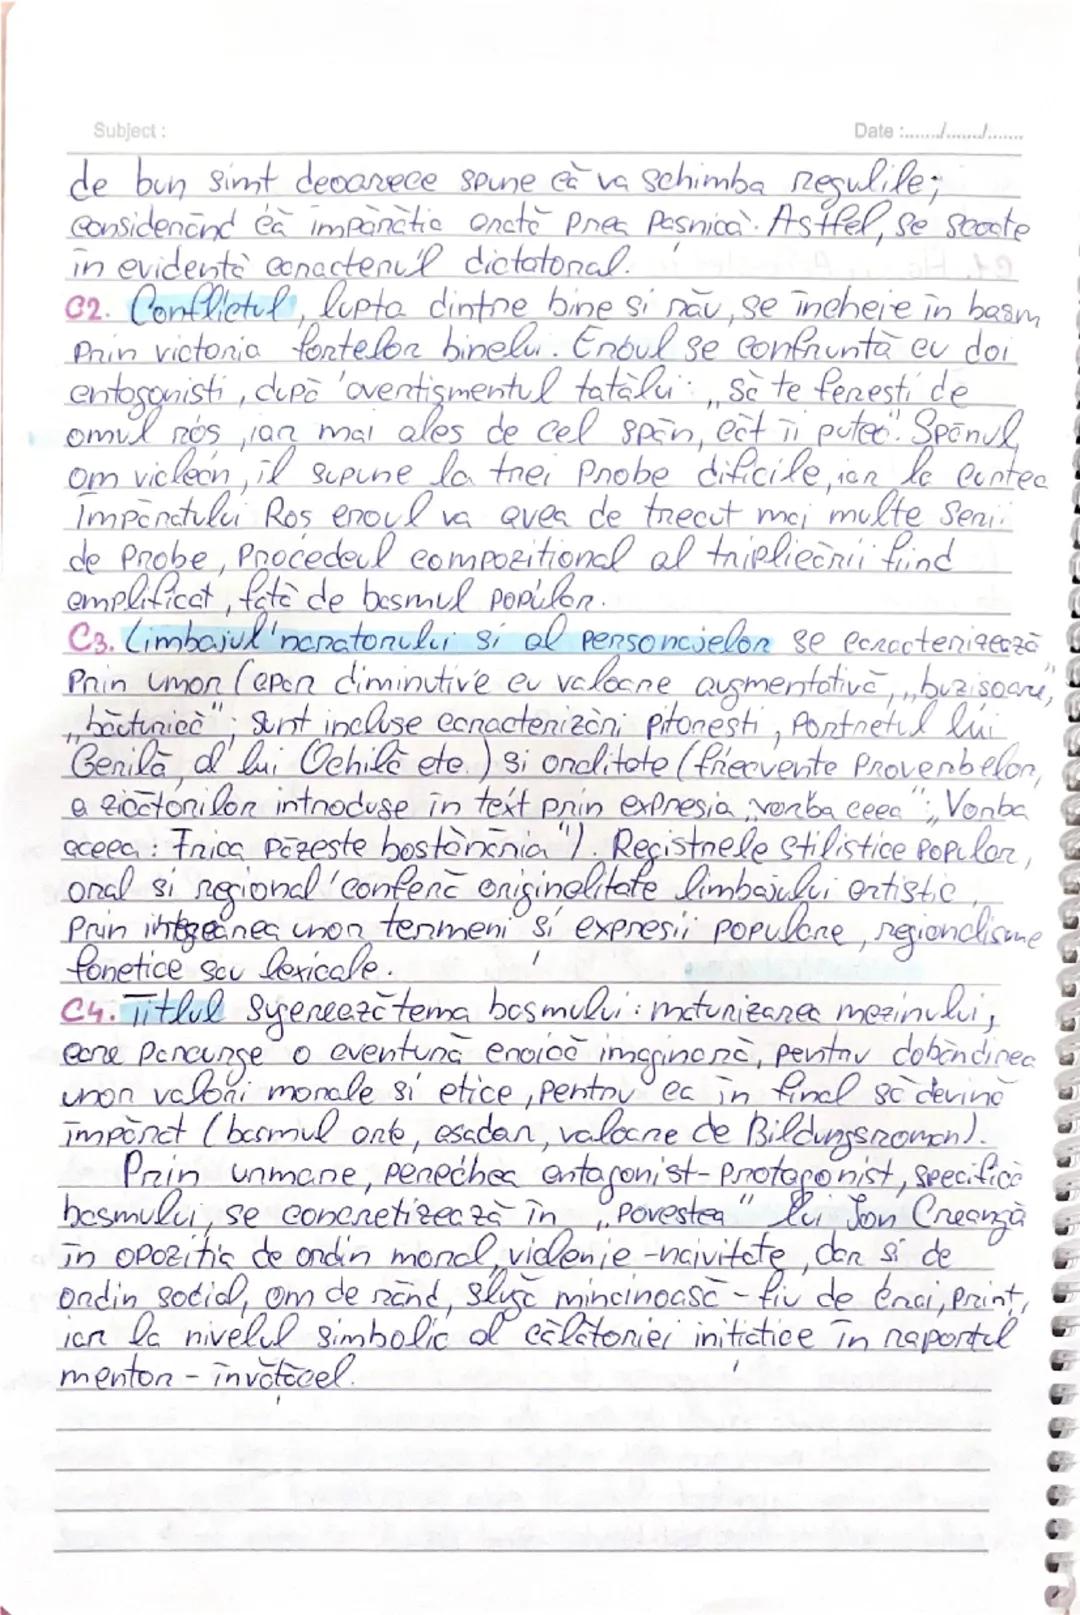 Subject :
Date :......./......./.......
de bun simt deoarece spune că va schimba regulile;
considerând că împărăția arată prea pașnică. Astfel, se scoate
în evidență caracterul dictatorial.
C2. Conflictul, lupta dintre bine și rău, se încheie în basm
prin victoria forțelor binelui. Eroul se confruntă cu doi
antagoniști, după avertismentul tatălui: „Să te ferești de
omul roș, iar mai ales de cel spân, cât îi putea". Spânul,
om viclean, îl supune la trei probe dificile, iar la curtea
Împăratului Roș eroul va avea de trecut mai multe serii
de probe, procedeul compozițional al triplicării fiind
amplificat, față de basmul popular.
C3. Limbajul naratorului și al personajelor se caracterizează
prin umor (apar diminutive cu valoare augmentativă „buzișoare",
„băuturică"; sunt incluse caracterizări pitorești, portretul lui
Gerilă, al lui Ochilă etc.) și oralitate (frecvente proverbelor,
a zicătorilor introduse în text prin expresia „vorba ceea"; „Vorba
aceea: Frica păzește bostănăria"). Registrele stilistice popular,
oral și regional conferă originalitate limbajului artistic,
prin integrarea unor termeni și expresii populare, regionalisme
fonetice sau lexicale.
C4. Titlul sugerează tema basmului: maturizarea mezinului,
care parcurge o aventură eroică imaginară, pentru dobândirea
unor valori morale și etice, pentru ca în final să devină
împărat (basmul are, așadar, valoare de Bildungsroman).
Prin urmare, perechea antagonist-protagonist, specifică
basmului, se concretizează în „povestea" lui Ion Creangă
în opoziția de ordin moral, viclenie-naivitate, dar și de
ordin social, om de rând, slugă mincinoasă - fiu de crai, prinț,
iar la nivelul simbolic al călătoriei inițiatice în raportul
mentor - învățăcel.